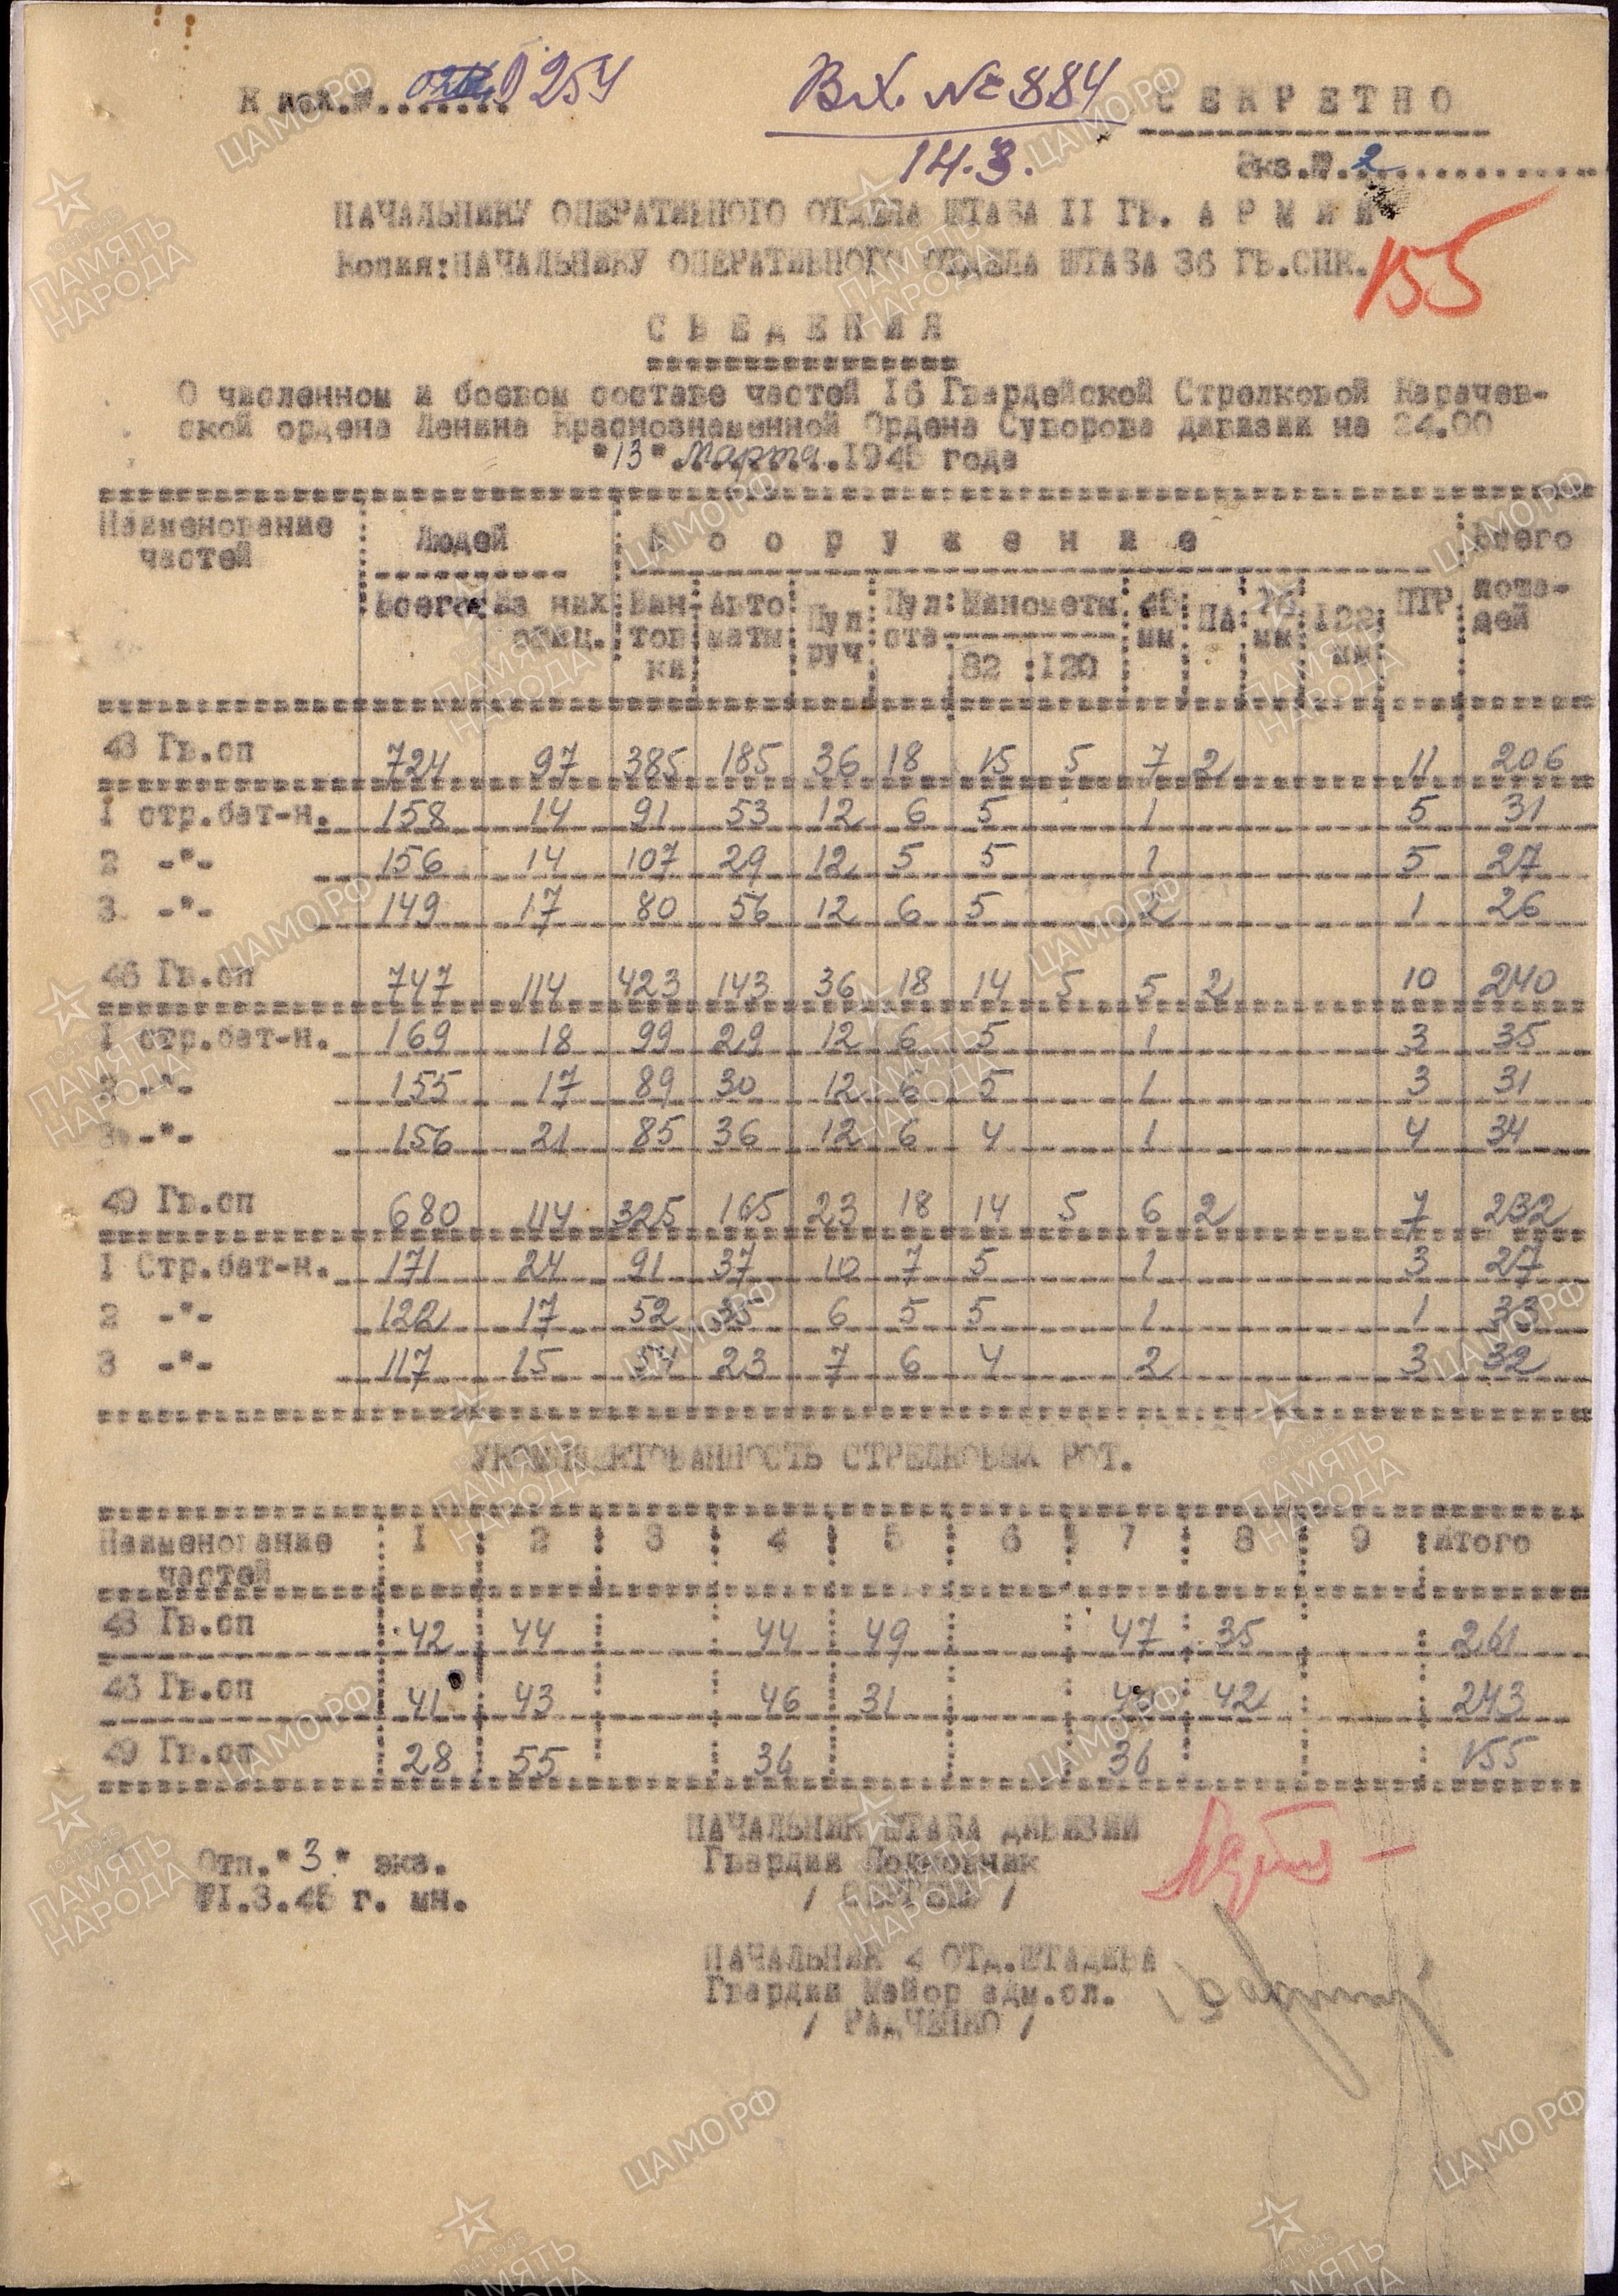 К исх.№....... 0254
Вх. № 884
14.3.
СЕКРЕТНО
Экз.№ 2
НАЧАЛЬНИКУ ОПЕРАТИВНОГО ОТДЕЛА ШТАБА II ГВ. АРМИИ
Копия:НАЧАЛЬНИКУ ОПЕРАТИВНОГО ОТДЕЛА ШТАБА 36 ГВ.СПК.
155
СВЕДЕНИЯ
О численном и боевом составе частей I6 Гвардейской Стрелковой Карачев-
ской ордена Ленина Краснознаменной Ордена Суворова дивизии на 24.00
"13" марта 1945 года
Наименование частей Людей Вооружение Всего лоша-дей
Всего Из них офиц. Вин-тов ки Авто маты Пул руч Пул ста Минометы 45 мм ПА 76 мм I22 мм ПТР
82 I20
43 Гв.сп 724 97 385 185 36 18 15 5 7 2 11 206
I стр.бат-н. 158 14 91 53 12 6 5 1 5 31
2 -"- 156 14 107 29 12 5 5 1 5 27
3 -"- 149 17 80 56 12 6 5 2 1 26
46 Гв.сп 747 114 423 143 36 18 14 5 5 2 10 240
I стр.бат-н. 169 18 99 29 12 6 5 1 3 35
2 -"- 155 17 89 30 12 6 5 1 3 31
3 -"- 156 21 85 36 12 6 4 1 4 34
49 Гв.сп 680 114 325 165 23 18 14 5 6 2 7 232
I Стр.бат-н. 171 24 91 37 10 7 5 1 3 27
2 -"- 122 17 52 35 6 5 5 1 1 33
3 -"- 117 15 54 23 7 6 4 2 3 32
УКОМПЛЕКТОВАННОСТЬ СТРЕЛКОВЫХ РОТ.
Наименование частей I 2 3 4 5 6 7 8 9 Итого
43 Гв.сп 42 44 44 49 47 35 261
46 Гв.сп 41 43 46 31 42 243
49 Гв.сп 28 55 36 36 155
НАЧАЛЬНИК ШТАБА ДИВИЗИИ
Гвардии Полковник
Отп."3" экз.
II.3.45 г. мн.
НАЧАЛЬНИК 4 ОТД.ШТАДИВА
Гвардии Майор адм.сл.
/ РАДЧЕНКО /
ЦАМО РФ
ПАМЯТЬ НАРОДА